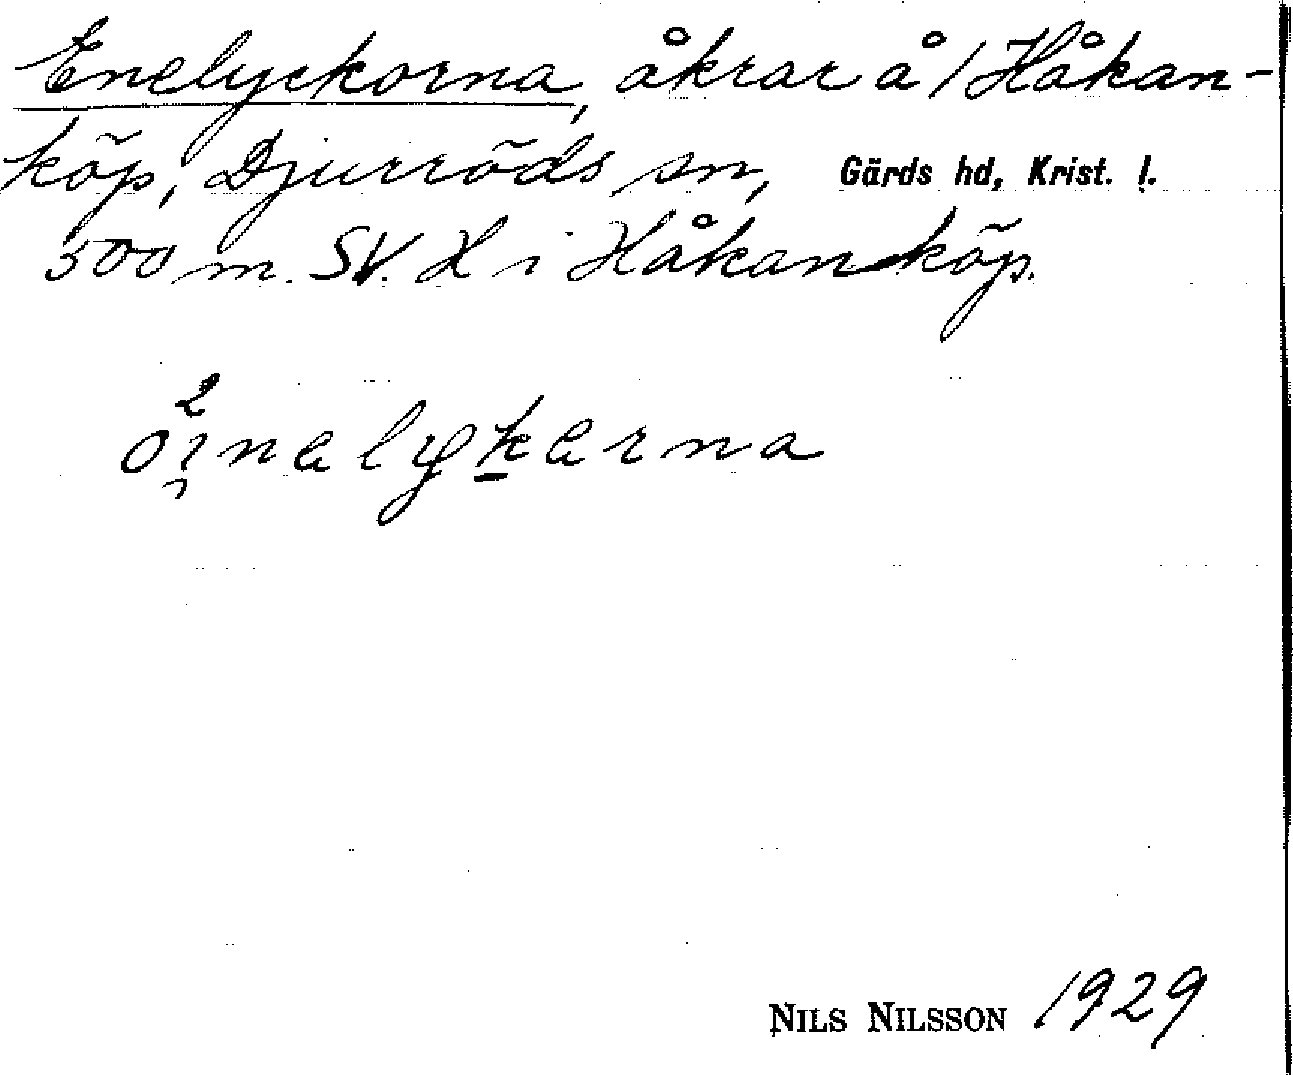 Enelyckorna, åkrar å / Håkan-
köp, Djurröds sn, Gärds hd, Krist. l.
500 m. SV. H i Håkanköp.
NILS NILSSON 1929